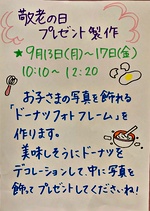 敬老の日
プレゼント製作
★9月13日(月)〜17日(金)
10:10〜12:20
お子さまの写真を飾れる
「ドーナツフォトフレーム」を
作ります。
美味しそうにドーナツを
デコレーションして、中に写真を
飾ってプレゼントしてくださいね!